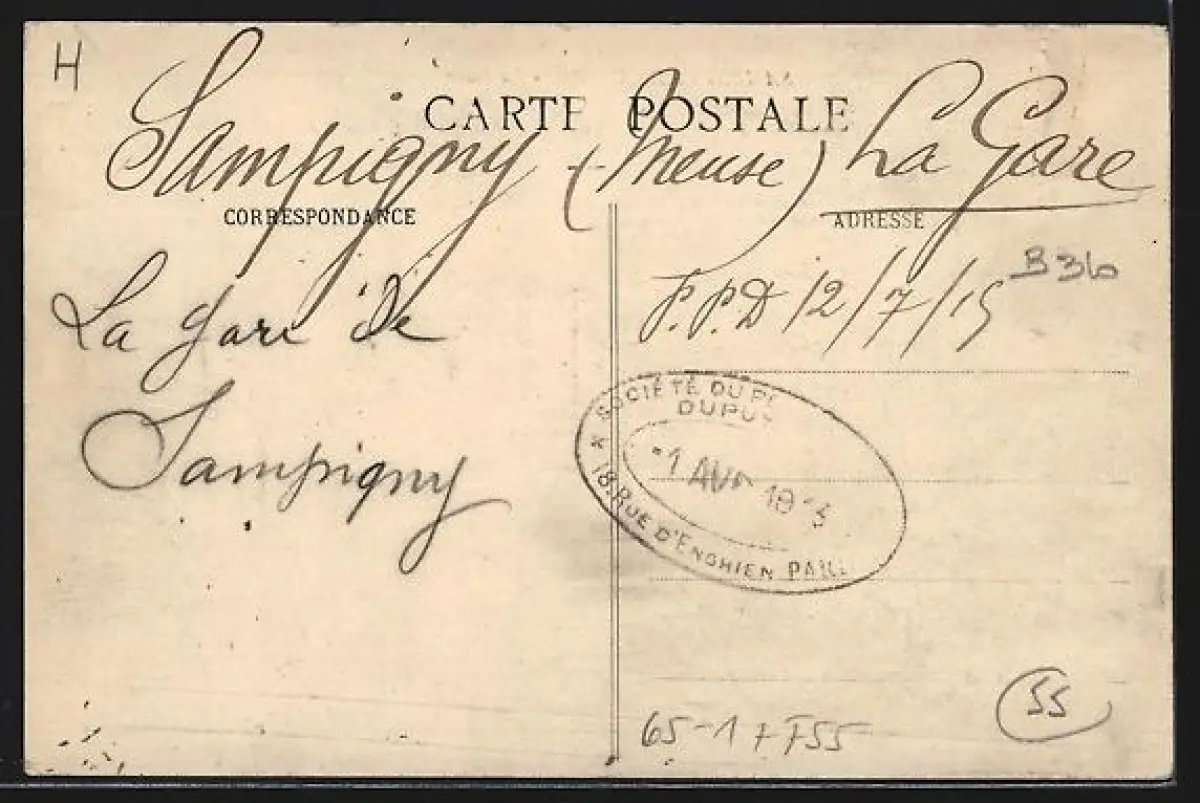 H
CARTE POSTALE
Sampigny (Meuse) La Gare
CORRESPONDANCE
ADRESSE
La gare de
Sampigny
P.P.D 12/7/15
B 36
SOCIÉTÉ DU
1 AVR
18 RUE D'ENGHIEN
65-1
55